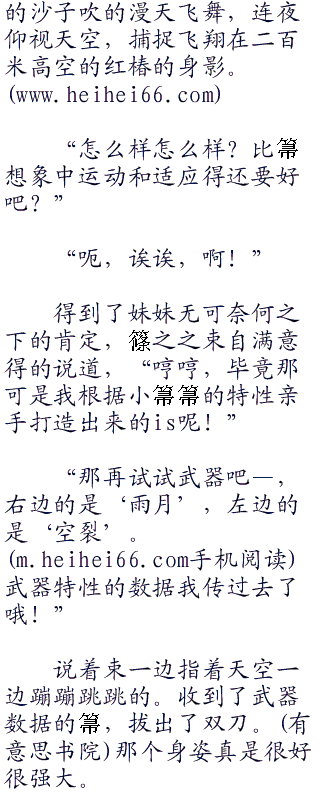 的沙子吹的漫天飞舞，连夜
仰视天空，捕捉飞翔在二百
米高空的红椿的身影。
(www.heihei66.com)
“怎么样怎么样？比箒
想象中运动和适应得还要好
吧？”
“呃，诶诶，啊！”
得到了妹妹无可奈何之
下的肯定，篠之之束自满意
得的说道，“哼哼，毕竟那
可是我根据小箒箒的特性亲
手打造出来的is呢！”
“那再试试武器吧—，
右边的是‘雨月’，左边的
是‘空裂’。
(m.heihei66.com手机阅读)
武器特性的数据我传过去了
哦！”
说着束一边指着天空一
边蹦蹦跳跳的。收到了武器
数据的箒，拔出了双刀。(有
意思书院)那个身姿真是很好
很强大。